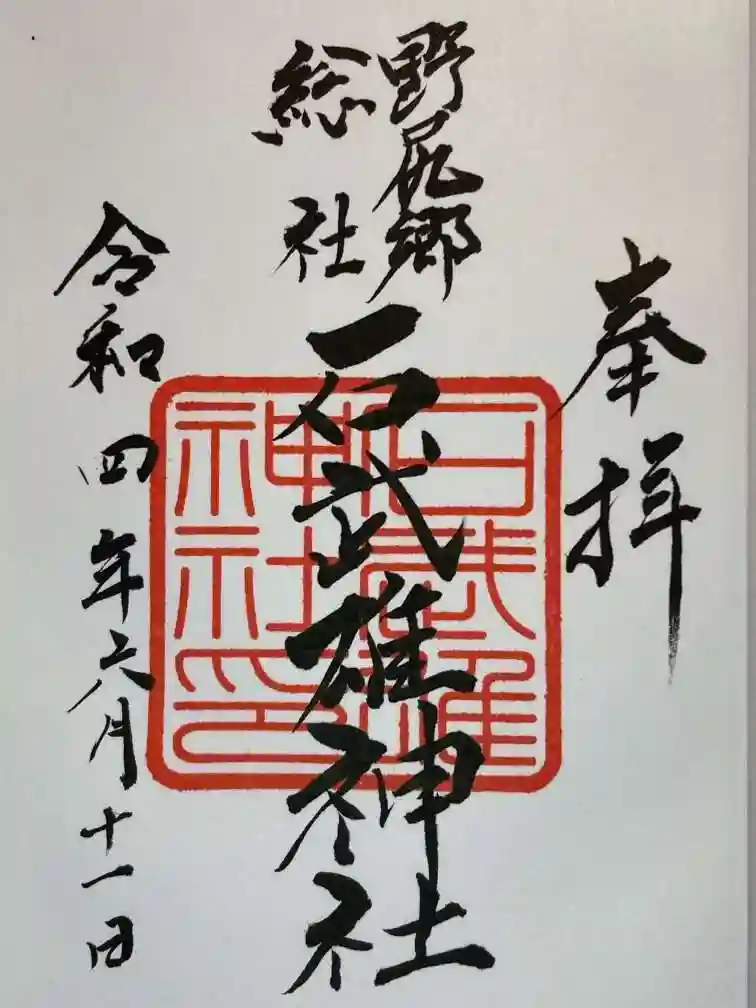 奉拝
野尻郷
総社
石武雄神社
令和四年六月十一日
石武雄
神社印